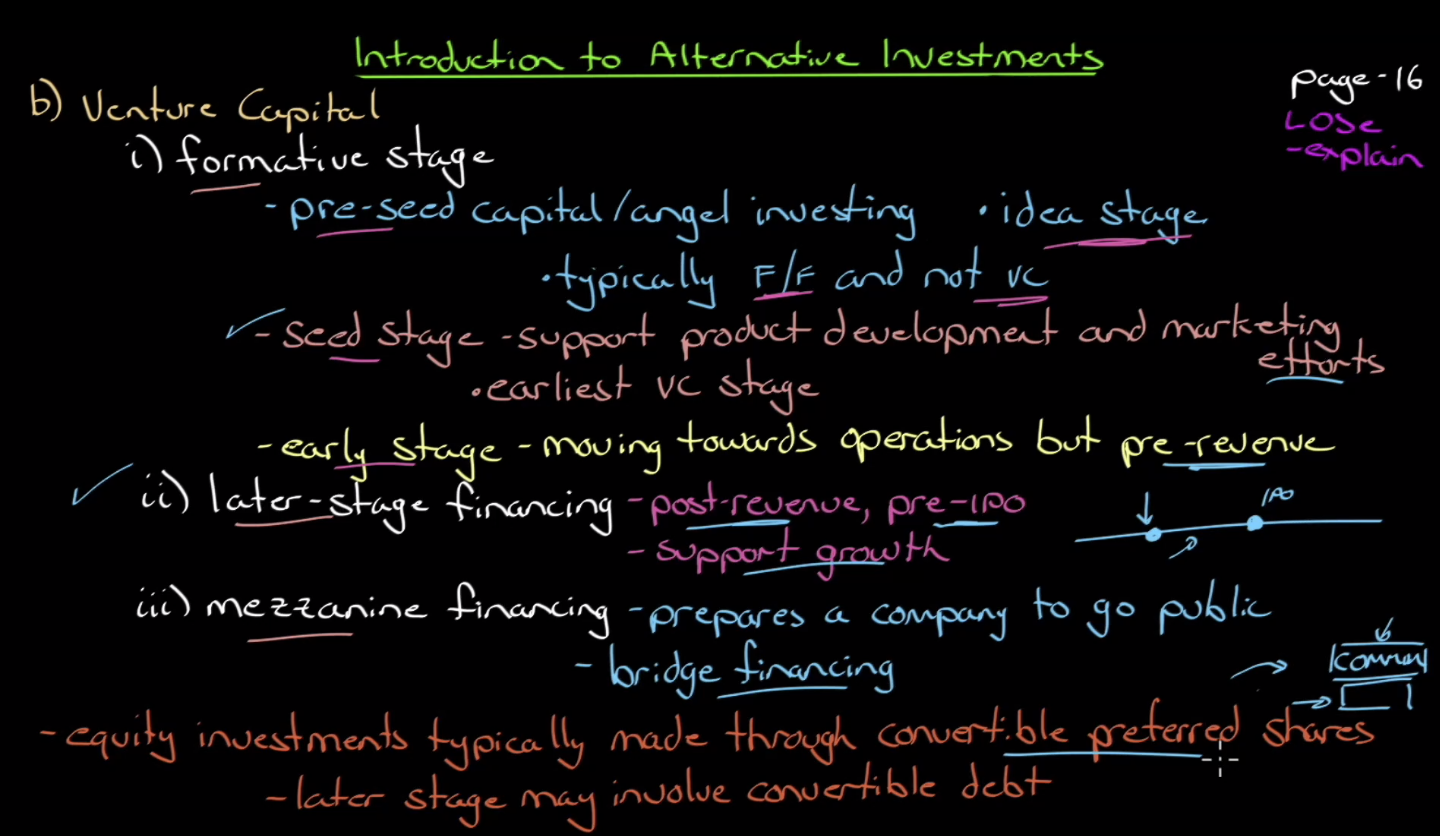 Introduction to Alternative Investments
page-16
LOSe
-explain
b) Venture Capital
i) formative stage
- pre-seed capital/angel investing • idea stage
• typically F/F and not VC
- seed stage - support product development and marketing
efforts
• earliest VC stage
- early stage - moving towards operations but pre-revenue
ii) later-stage financing - post-revenue, pre-IPO
IPO
- support growth
iii) mezzanine financing - prepares a company to go public
- bridge financing
- equity investments typically made through convertible preferred shares
- later stage may involve convertible debt